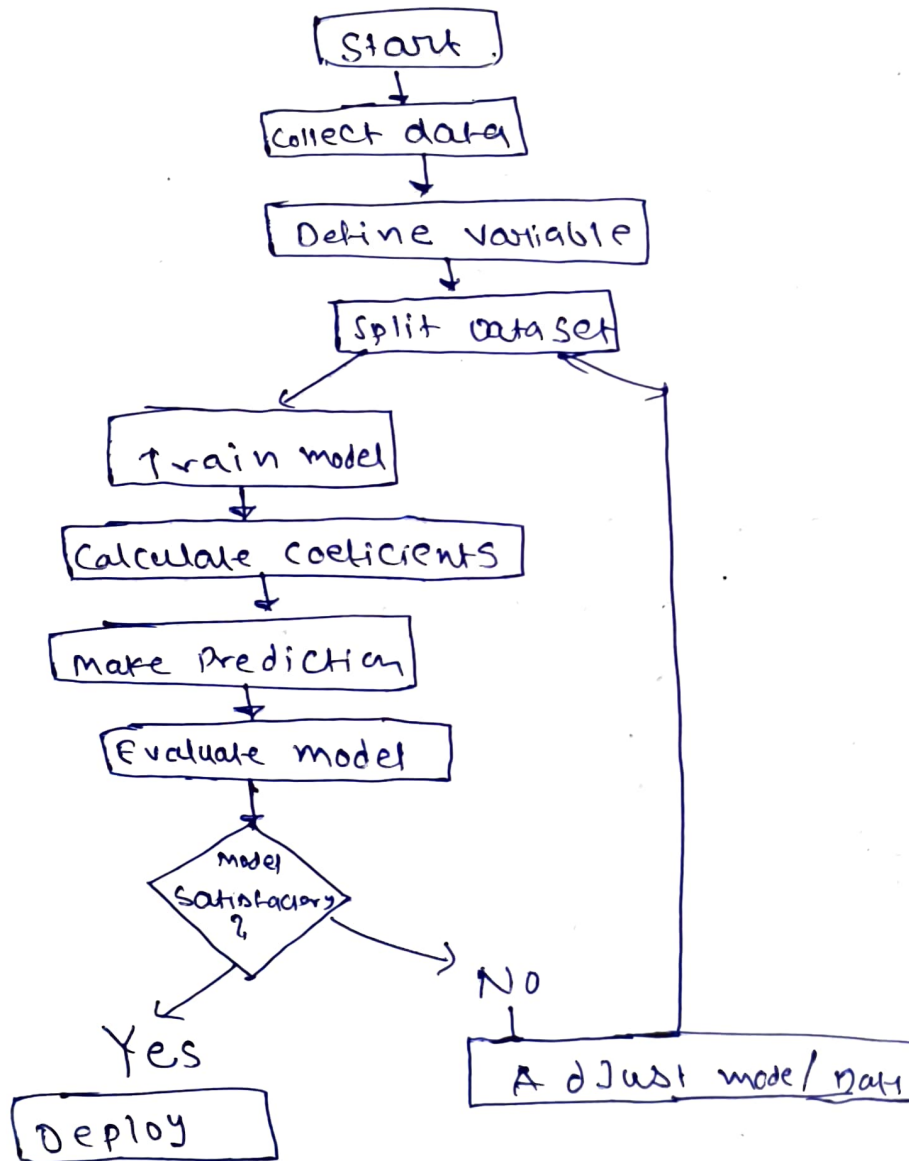 Start
Collect data
Define variable
Split Dataset
Train model
Calculate coeficients
Make Prediction
Evaluate model
Model
Satisfactory
?
Yes
NO
Deploy
AdJust model Data